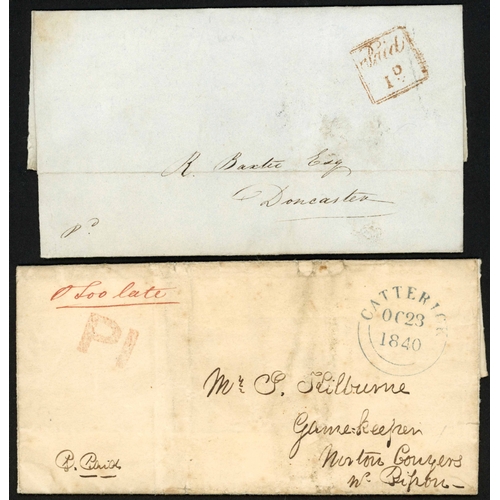 Paid
1D
R. Baxter Esq
Doncaster
Pd
Too late
P1
CATTERICK
OC23
1840
Mr. J. Kilburne
Gamekeeper
Norton Conyers
Nr. Ripon
P. Paid